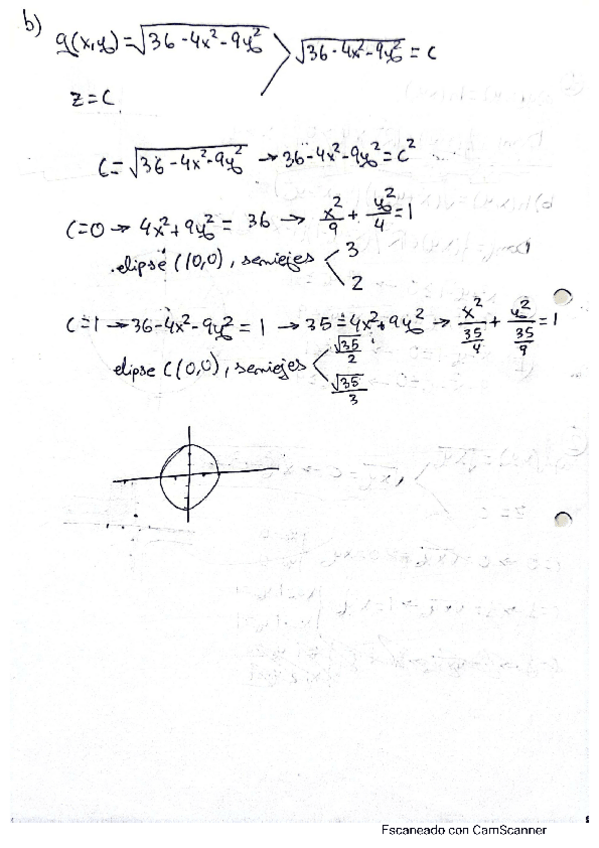 b)
g(x,y) = √(36-4x²-9y²) > √(36-4x²-9y²) = C
z = C
C = √(36-4x²-9y²) → 36-4x²-9y² = C²
C=0 → 4x²+9y² = 36 → x²/9 + y²/4 = 1
.elipse C(0,0), semiejes < 3
2
C=1 → 36-4x²-9y² = 1 → 35 = 4x²+9y² → x²/(35/4) + y²/(35/9) = 1
elipse C(0,0), semiejes < √35/2
√35/3
Escaneado con CamScanner